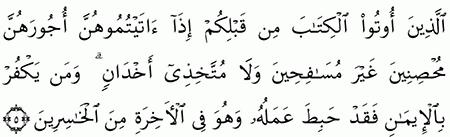 ٱلَّذِينَ أُوتُوا۟ ٱلْكِتَٰبَ مِن قَبْلِكُمْ إِذَآ ءَاتَيْتُمُوهُنَّ أُجُورَهُنَّ
مُحْصِنِينَ غَيْرَ مُسَٰفِحِينَ وَلَا مُتَّخِذِىٓ أَخْدَانٍۢ ۗ وَمَن يَكْفُرْ
بِٱلْإِيمَٰنِ فَقَدْ حَبِطَ عَمَلُهُۥ وَهُوَ فِى ٱلْأَخِرَةِ مِنَ ٱلْخَٰسِرِينَ ۝٥